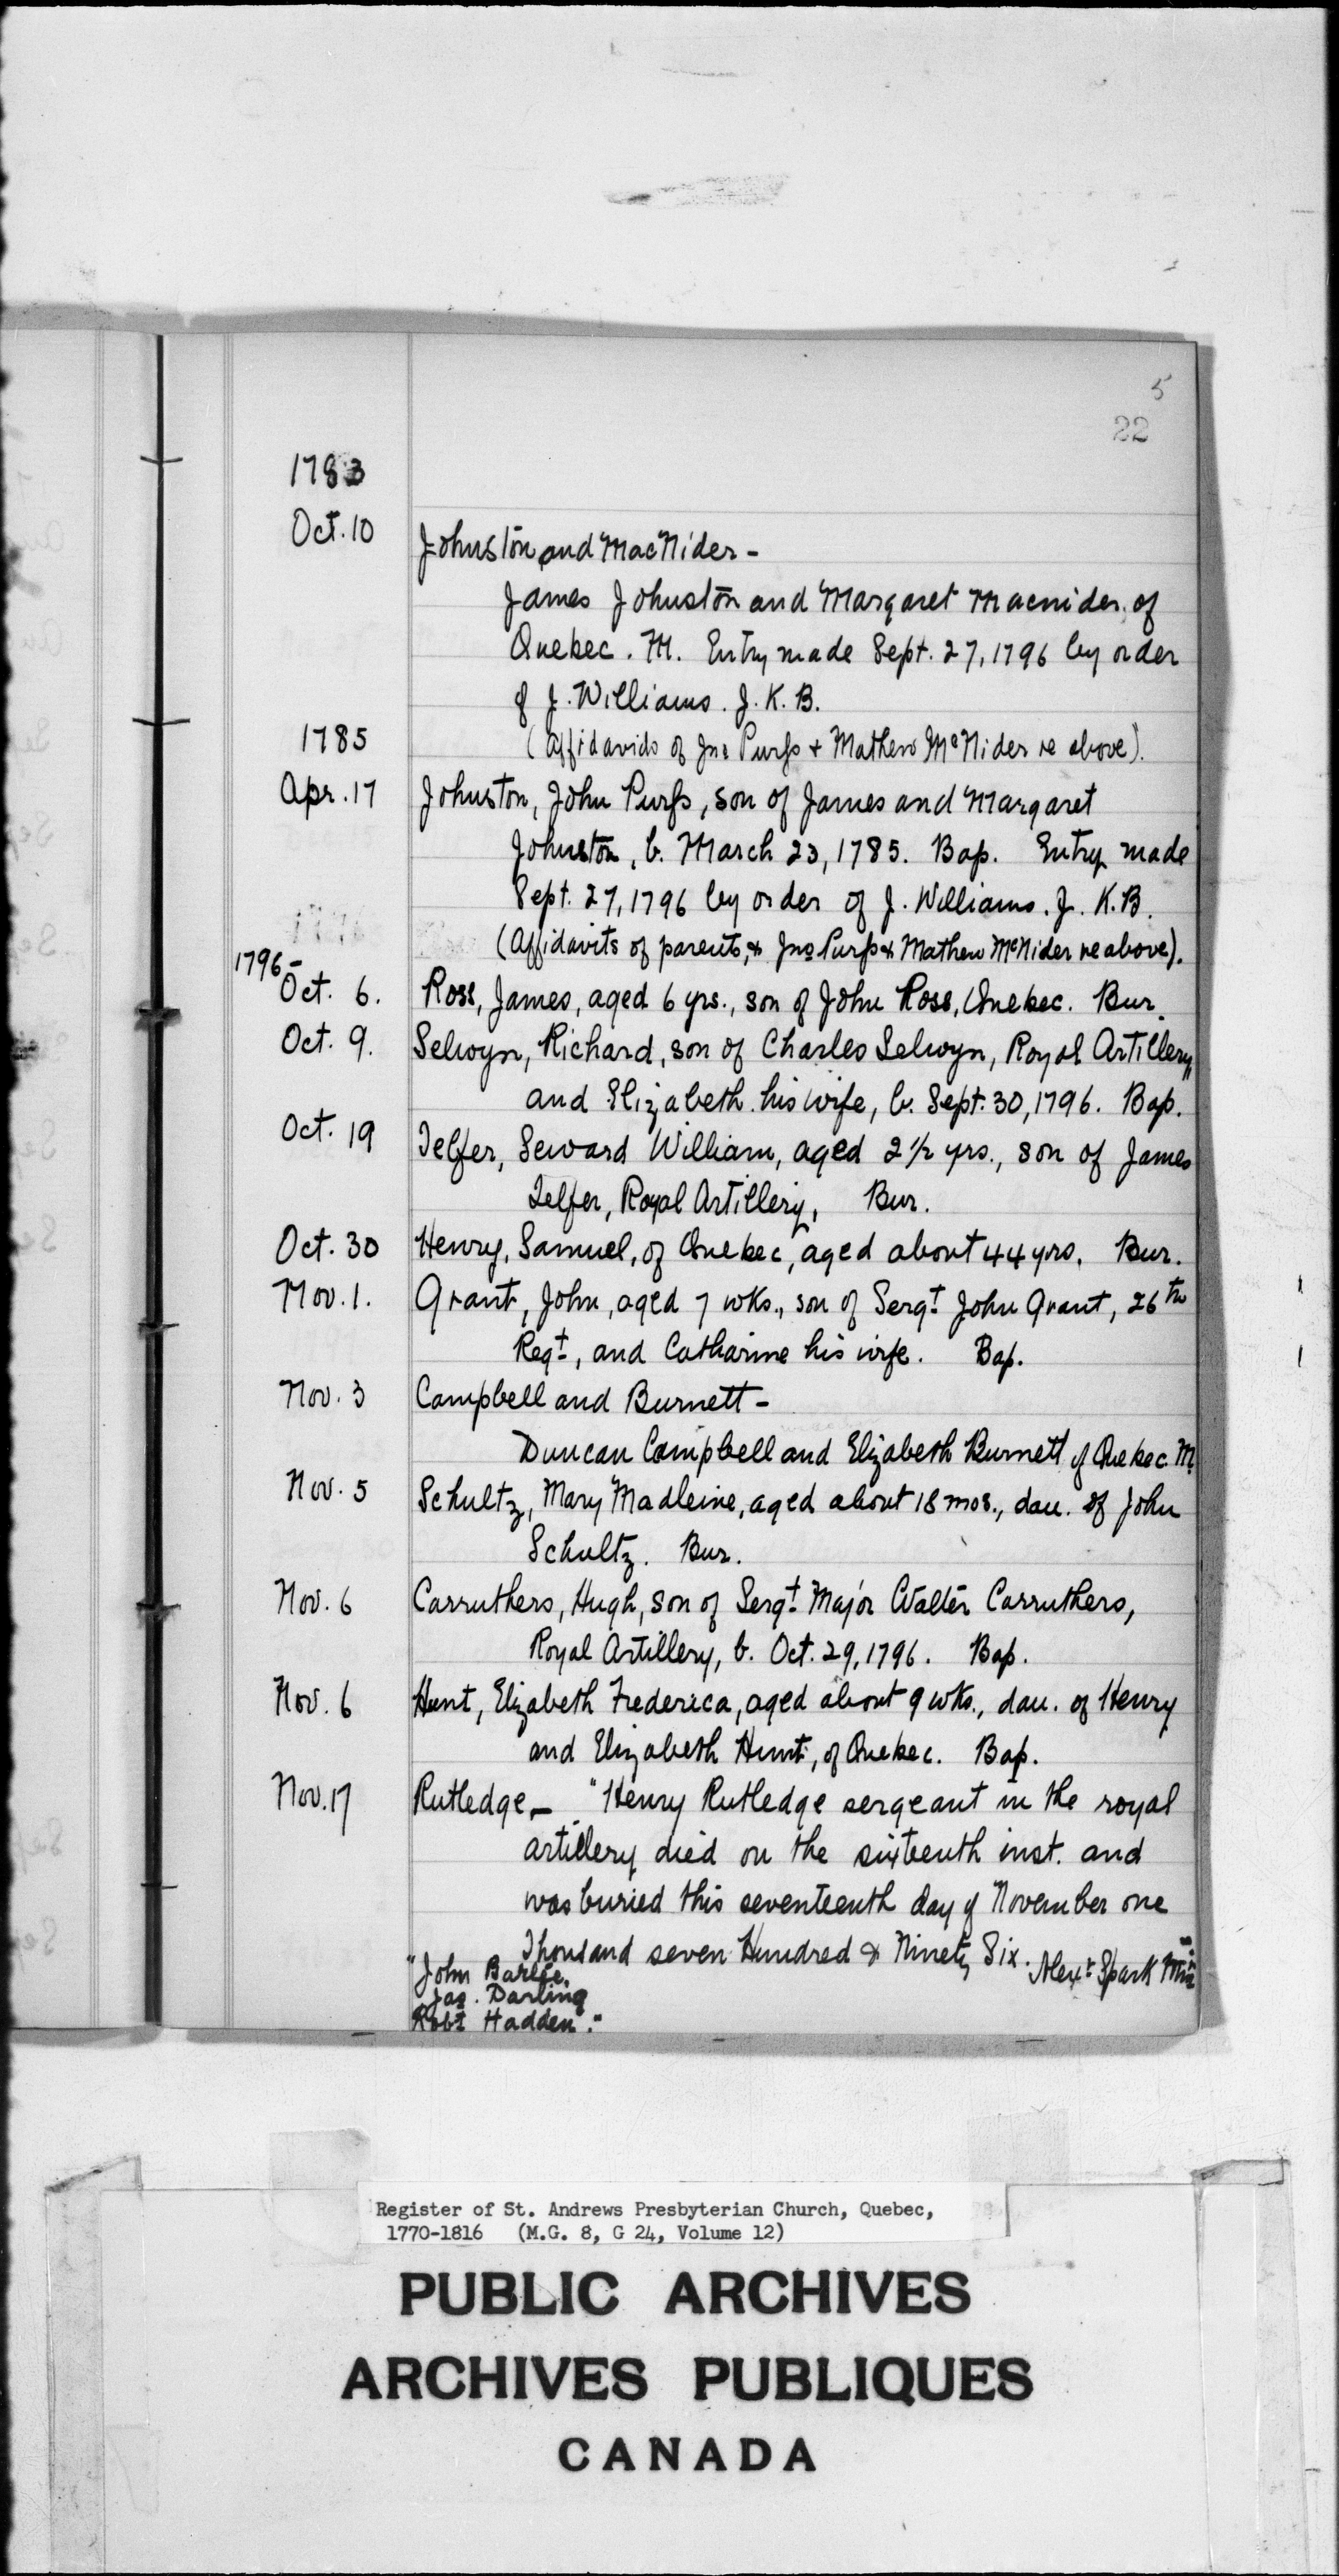 5
22
1783
Oct. 10 Johnston and MacNider -
James Johnston and Margaret Macnider of
Quebec. M. Entry made Sept. 27, 1796 by order
of J. Williams. J. K. B.
1785 (Affidavids of Jno Purss + Mathew McNider re above).
Apr. 17 Johnston, John Purss, son of James and Margaret
Johnston, b. March 23, 1785. Bap. Entry made
Sept. 27, 1796 by order of J. Williams. J. K.B.
(Affidavits of parents, & Jno Purss & Mathew McNider re above).
1796-
Oct. 6. Ross, James, aged 6 yrs., son of John Ross, Quebec. Bur.
Oct. 9. Selwyn, Richard, son of Charles Selwyn, Royal Artillery,
and Elizabeth his wife, b. Sept. 30, 1796. Bap.
Oct. 19 Telfer, Seward William, aged 2 1/2 yrs., son of James
Telfer, Royal Artillery, Bur.
Oct. 30 Henry, Samuel, of Quebec, aged about 44 yrs. Bur.
Nov. 1. Grant, John, aged 7 wks., son of Sergt John Grant, 26th
Regt, and Catharine his wife. Bap.
Nov. 3 Campbell and Burnett -
Duncan Campbell and Elizabeth Burnett of Quebec. M.
Nov. 5 Schultz, Mary Madleine, aged about 18 mos., dau. of John
Schultz. Bur.
Nov. 6 Carruthers, Hugh, son of Sergt Major Walter Carruthers,
Royal Artillery, b. Oct. 29, 1796. Bap.
Nov. 6 Hunt, Elizabeth Frederica, aged about 9 wks., dau. of Henry
and Elizabeth Hunt, of Quebec. Bap.
Nov. 17 Rutledge, - "Henry Rutledge sergeant in the royal
artillery died on the sixteenth inst. and
was buried this seventeenth day of November one
Thousand seven Hundred & Ninety Six. Alexr Spark Minr"
"John Barlie.
Jas. Darling
Robt Hadden."
Register of St. Andrews Presbyterian Church, Quebec,
1770-1816 (M.G. 8, G 24, Volume 12)
PUBLIC ARCHIVES
ARCHIVES PUBLIQUES
CANADA